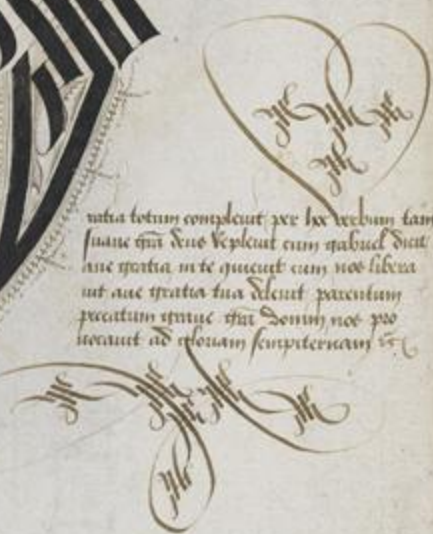 ratia totum compleuit per hoc verbum tam
suaue qn̄ deus repleuit cum gabriel dixit
aue gratia in te quieuit cum nos libera
uit aue gratia tua deleuit parentum
peccatum graue qn̄ Domin nos pro
uocauit ad gloriam sempiternam